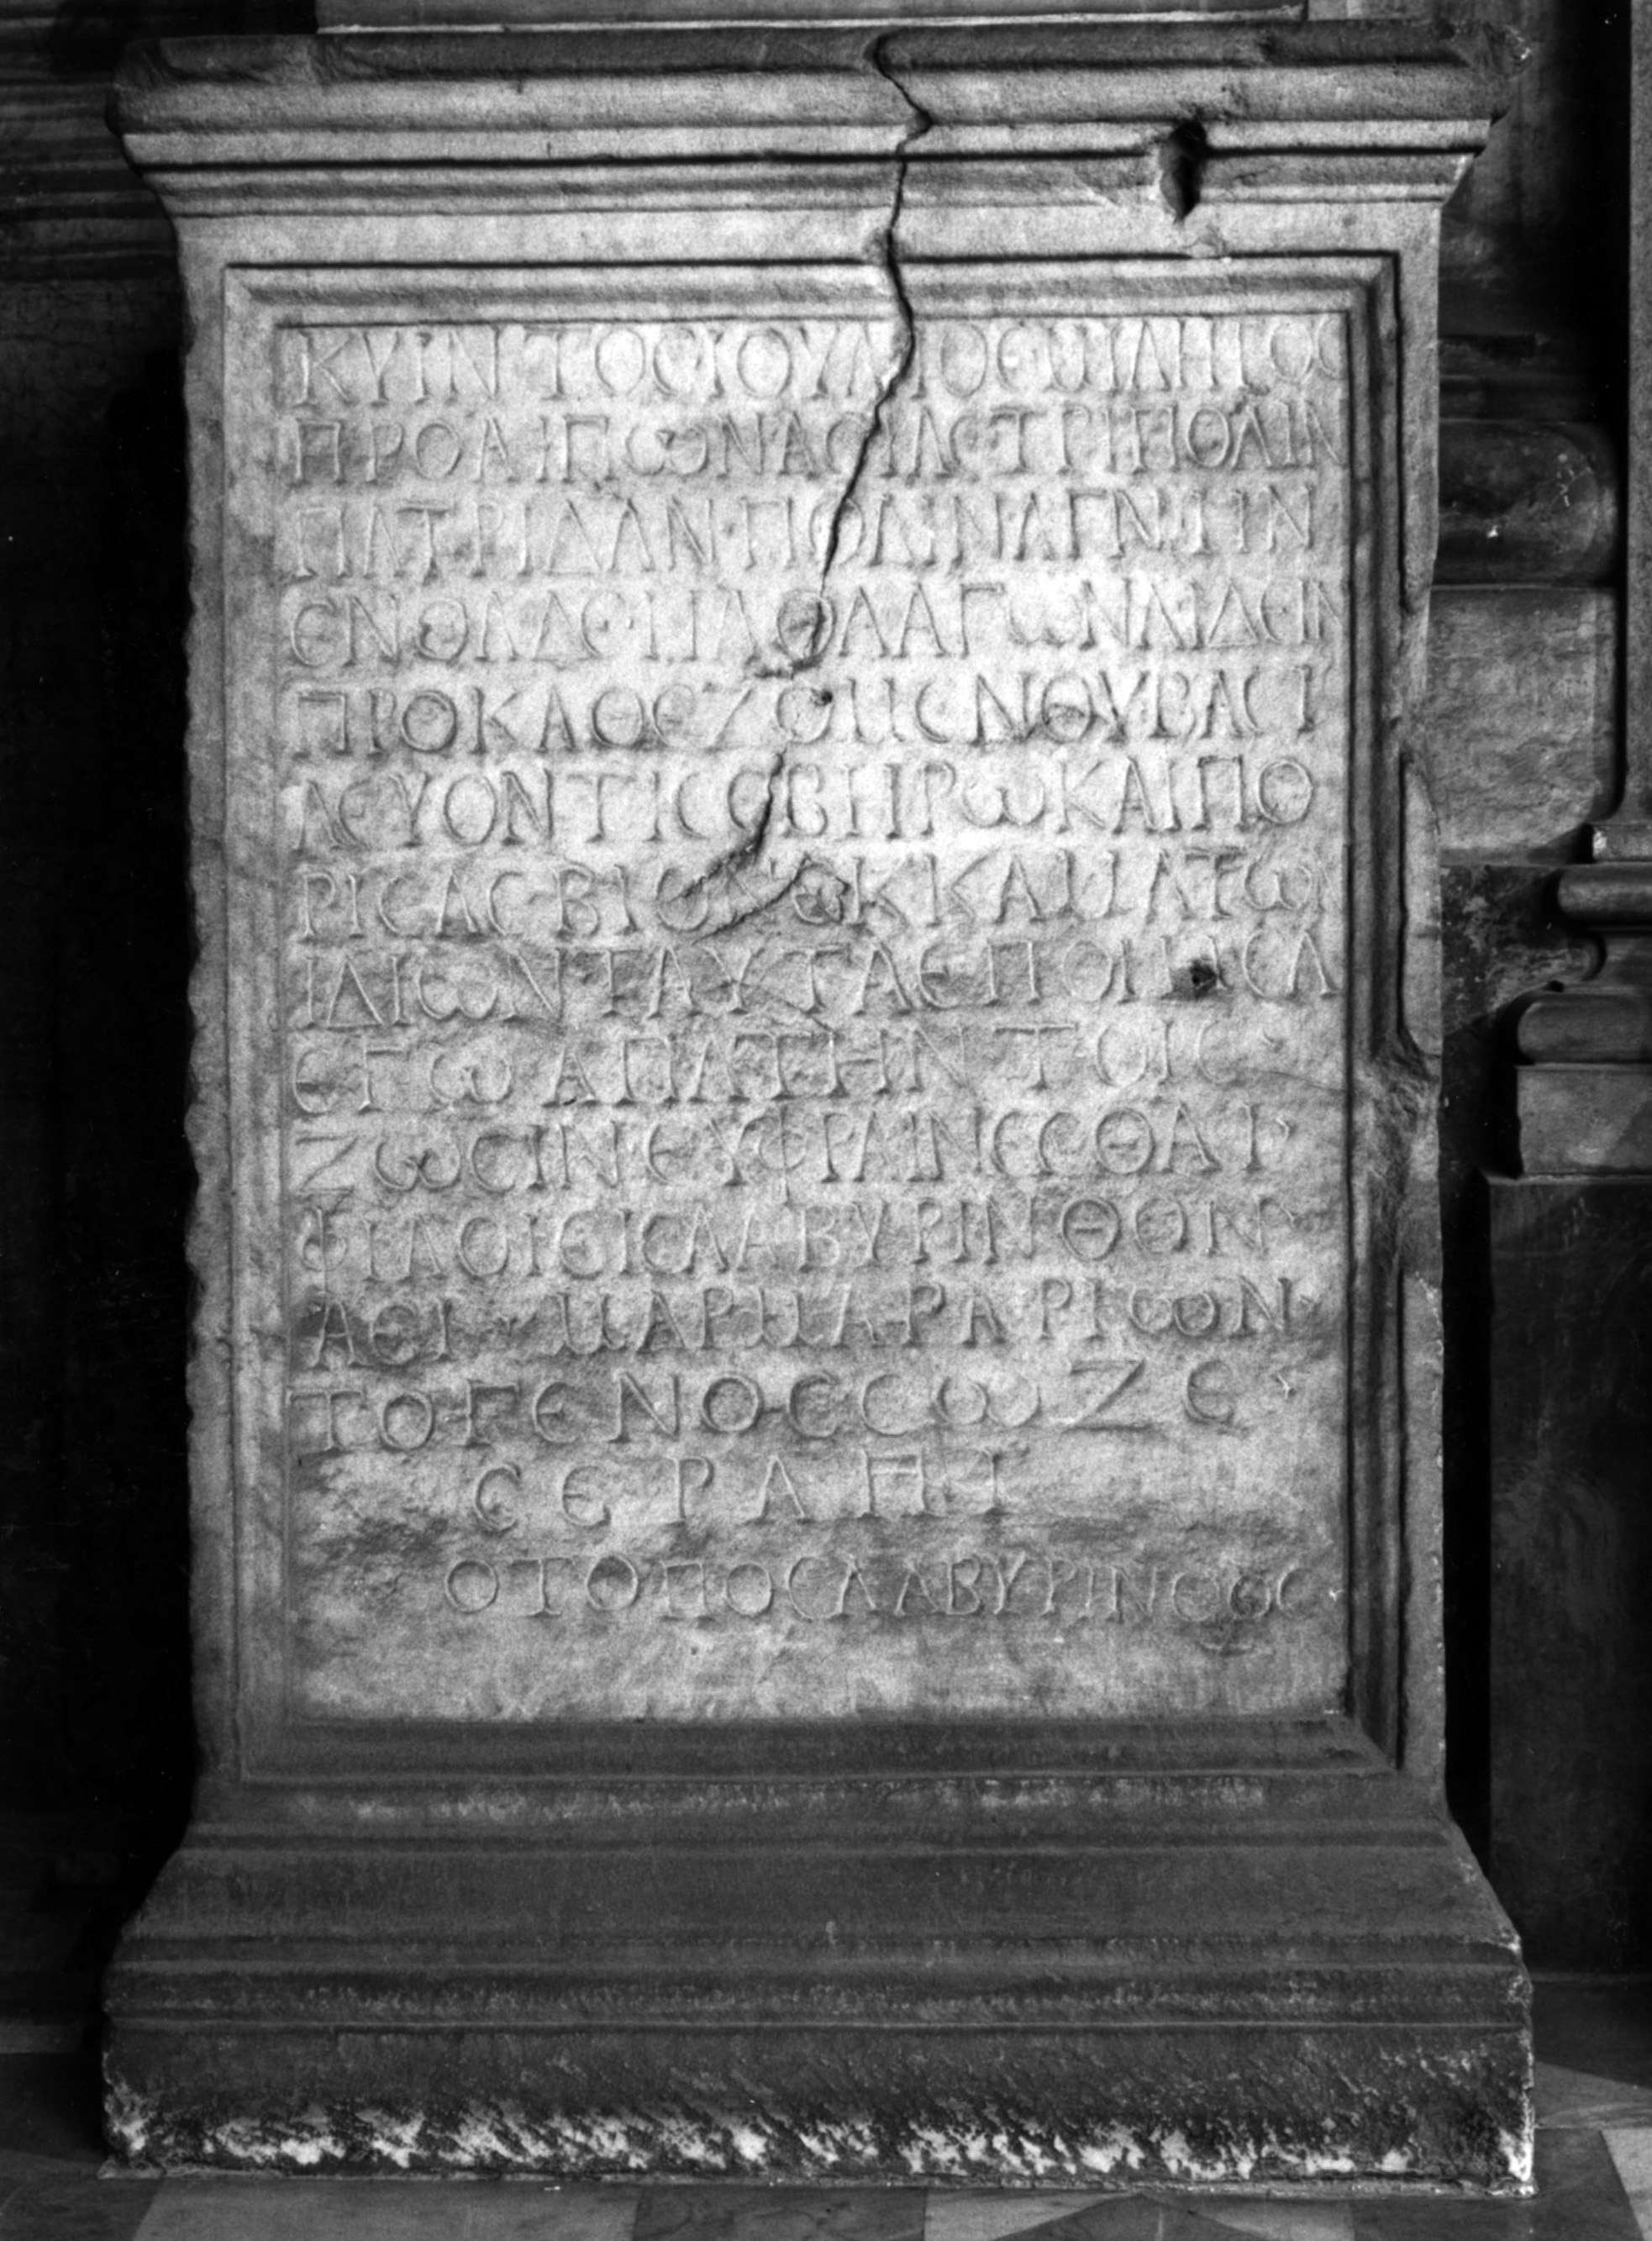 ΚΥΙΝΤΟϹΙΟΥΛΙΟϹΜΙΛΗΤΟϹ
ΠΡΟΛΙΠωΝΑϹΙΑϹΤΡΙΠΟΛΙΝ
ΠΑΤΡΙΔΑΝΠΟΛΙΝΑΓΝΗΝ
ЄΝΘΑΔЄΗΛΘΑΑΓωΝΑΙΔЄΙΝ
ΠΡΟΚΑΘЄΖΟΜЄΝΟΥΒΑϹΙ
ΛЄΥΟΝΤΙϹЄΒΗΡωΚΑΙΠΟ
ΡΙϹΑϹΒΙΟΝЄΚΚΑΜΑΤωΝ
ΙΔΙωΝΤΑΥΤΑЄΠΟΙΗϹΑ
ЄΓωΑΠΑΤΗΝΤΟΙϹ
ΖωϹΙΝЄΥΦΡΑΙΝЄϹΘΑΙ
ΦΙΛΟΙЄΙϹΛΑΒΥΡΙΝΘΟΝ
ΑЄΙ ΜΑΡΜΑΡΑΡΙωΝ
ΤΟΓЄΝΟϹϹωΖЄ
ϹЄΡΑΠΙ
ΟΤΟΠΟϹΛΑΒΥΡΙΝΘΟϹ